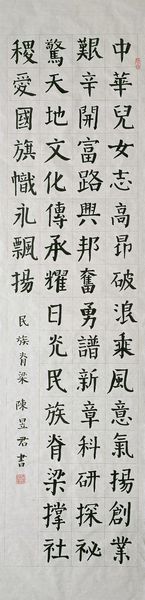 中華兒女志高昂破浪乘風意氣揚創業
艱辛開富路興邦奮勇譜新章科研探祕
驚天地文化傳承耀日光民族脊梁撐社
稷愛國旗幟永飄揚
民族脊梁 陳昱君書